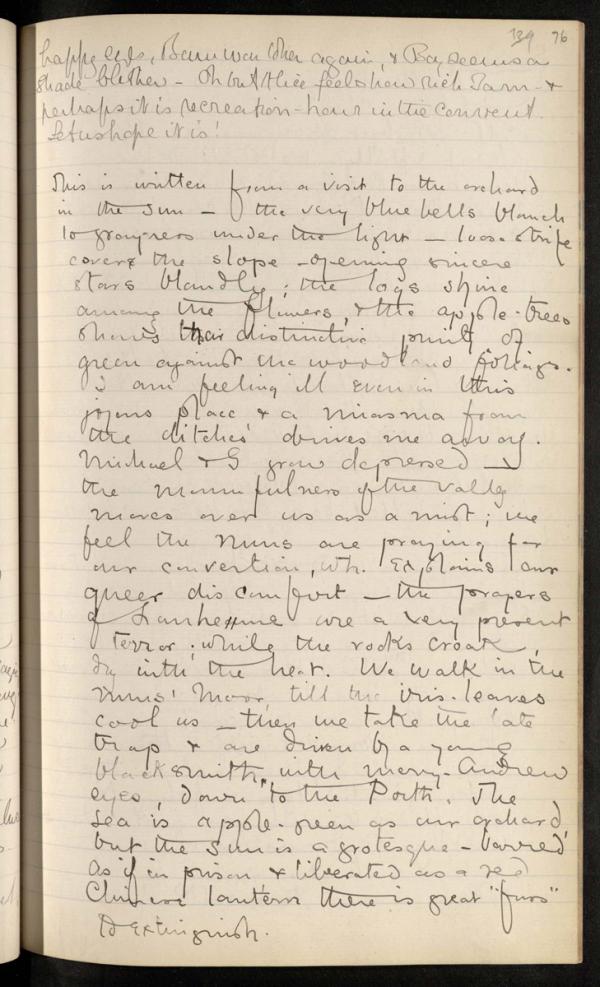 139 76
happy eyes, again, & Bay seems a
shade blither – Oh but Alice feels how rich &
perhaps it is recreation-hour in the convent.
Let us hope it is!
This is written from a visit to the orchard
in the sun – the very blue bells blanch
to grayness under the light – loose strife
covers the slope – opening sincere
stars blandly; the logs shine
among the flowers, & the apple-trees
their distinctive print of
green against the woodland foliage.
I am feeling ill even in this
joyous place & a miasma from
the ditches drives me away.
Michael & I grow depressed –
the mournfulness of the valley
moves over us as a mist; we
feel the Nuns are praying for
our conversion, wh. explains our
queer discomfort – the prayers
of Lanherne are a very present
terror; while the rooks croak,
dry with the heat. We walk in the
nuns' Moor, till the iris-leaves
cool us – then we take the late
trap & are driven by a young
blacksmith, with merry-Andrew
eyes, down to the Porth. The
Sea is apple-green as our orchard,
but the sun is a grotesque – barred
as if in prison & liberated as a red
Chinese lantern there is great "funs"
to extinguish.